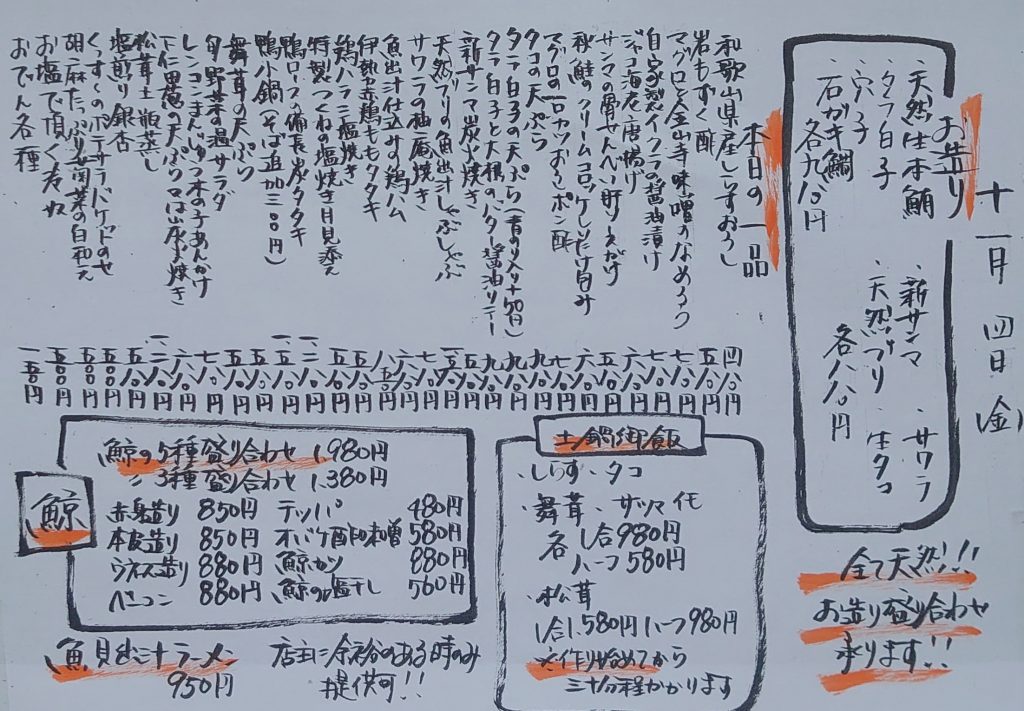 十一月四日(金)
お造り
・天然生本鮪
・タラ白子
・穴子
・石ガキ鯛
各九八〇円
・新サンマ
・天然ブリ
・サワラ
・生タコ
各八八〇円
全て天然!!
お造り盛り合わせ
承ります!!
本日の一品
和歌山県産しらすおろし
岩もずく酢
マグロと金山寺味噌のなめろう
自家製イクラの醤油漬け
ジャコ海老唐揚げ
サンマの骨せんべい肝ソースがけ
秋鮭のクリームコロッケしいたけ包み
マグロの一口カツおろしポン酢
タコの天ぷら
タラ白子の天ぷら(青のり入り+50円)
タラ白子と大根のバター醤油ソテー
新サンマ炭火焼き
天然ブリの魚出汁しゃぶしゃぶ
サワラの柚庵焼き
魚出汁仕込みの鶏ハム
伊勢赤鶏ももタタキ
鶏ハラミ塩焼き
特製つくね塩焼き月見添え
鴨ロースの備長炭タタキ
鴨小鍋(そば追加三三〇円)
舞茸の天ぷら
旬野菜の温サラダ
レンコンまんじゅう木の子あんかけ
下仁田葱の天ぷら又は炭火焼き
松茸土瓶蒸し
塩煎り銀杏
くっすぐのポテサラバケットのせ
胡麻たっぷり春菊の白和え
お塩で頂く冷奴
おでん各種
鯨
鯨の5種盛り合わせ 1,980円
〃 3種盛り合わせ 1,380円
赤身造り 850円 テッパ 480円
本皮造り 850円 オバケ酢味噌 580円
ウネス造り 880円 鯨カツ 880円
ベーコン 880円 鯨の塩干し 560円
魚貝出汁ラーメン
950円
店主に余裕のある時のみ
提供可!!
土鍋御飯
・しらす・タコ
・舞茸・サツマイモ
各 1合980円
ハーフ580円
・松茸
1合1,580円ハーフ980円
※作り始めてから
三十分程かかります